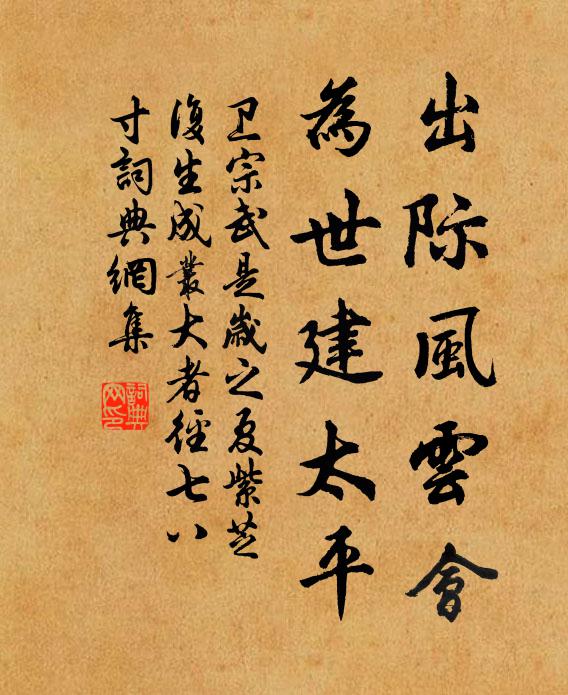 出际風雲會
為世建太平
卫宗武是歲之夏紫芝
復生成叢大者徑七八
寸詞典網集
詞典
网印